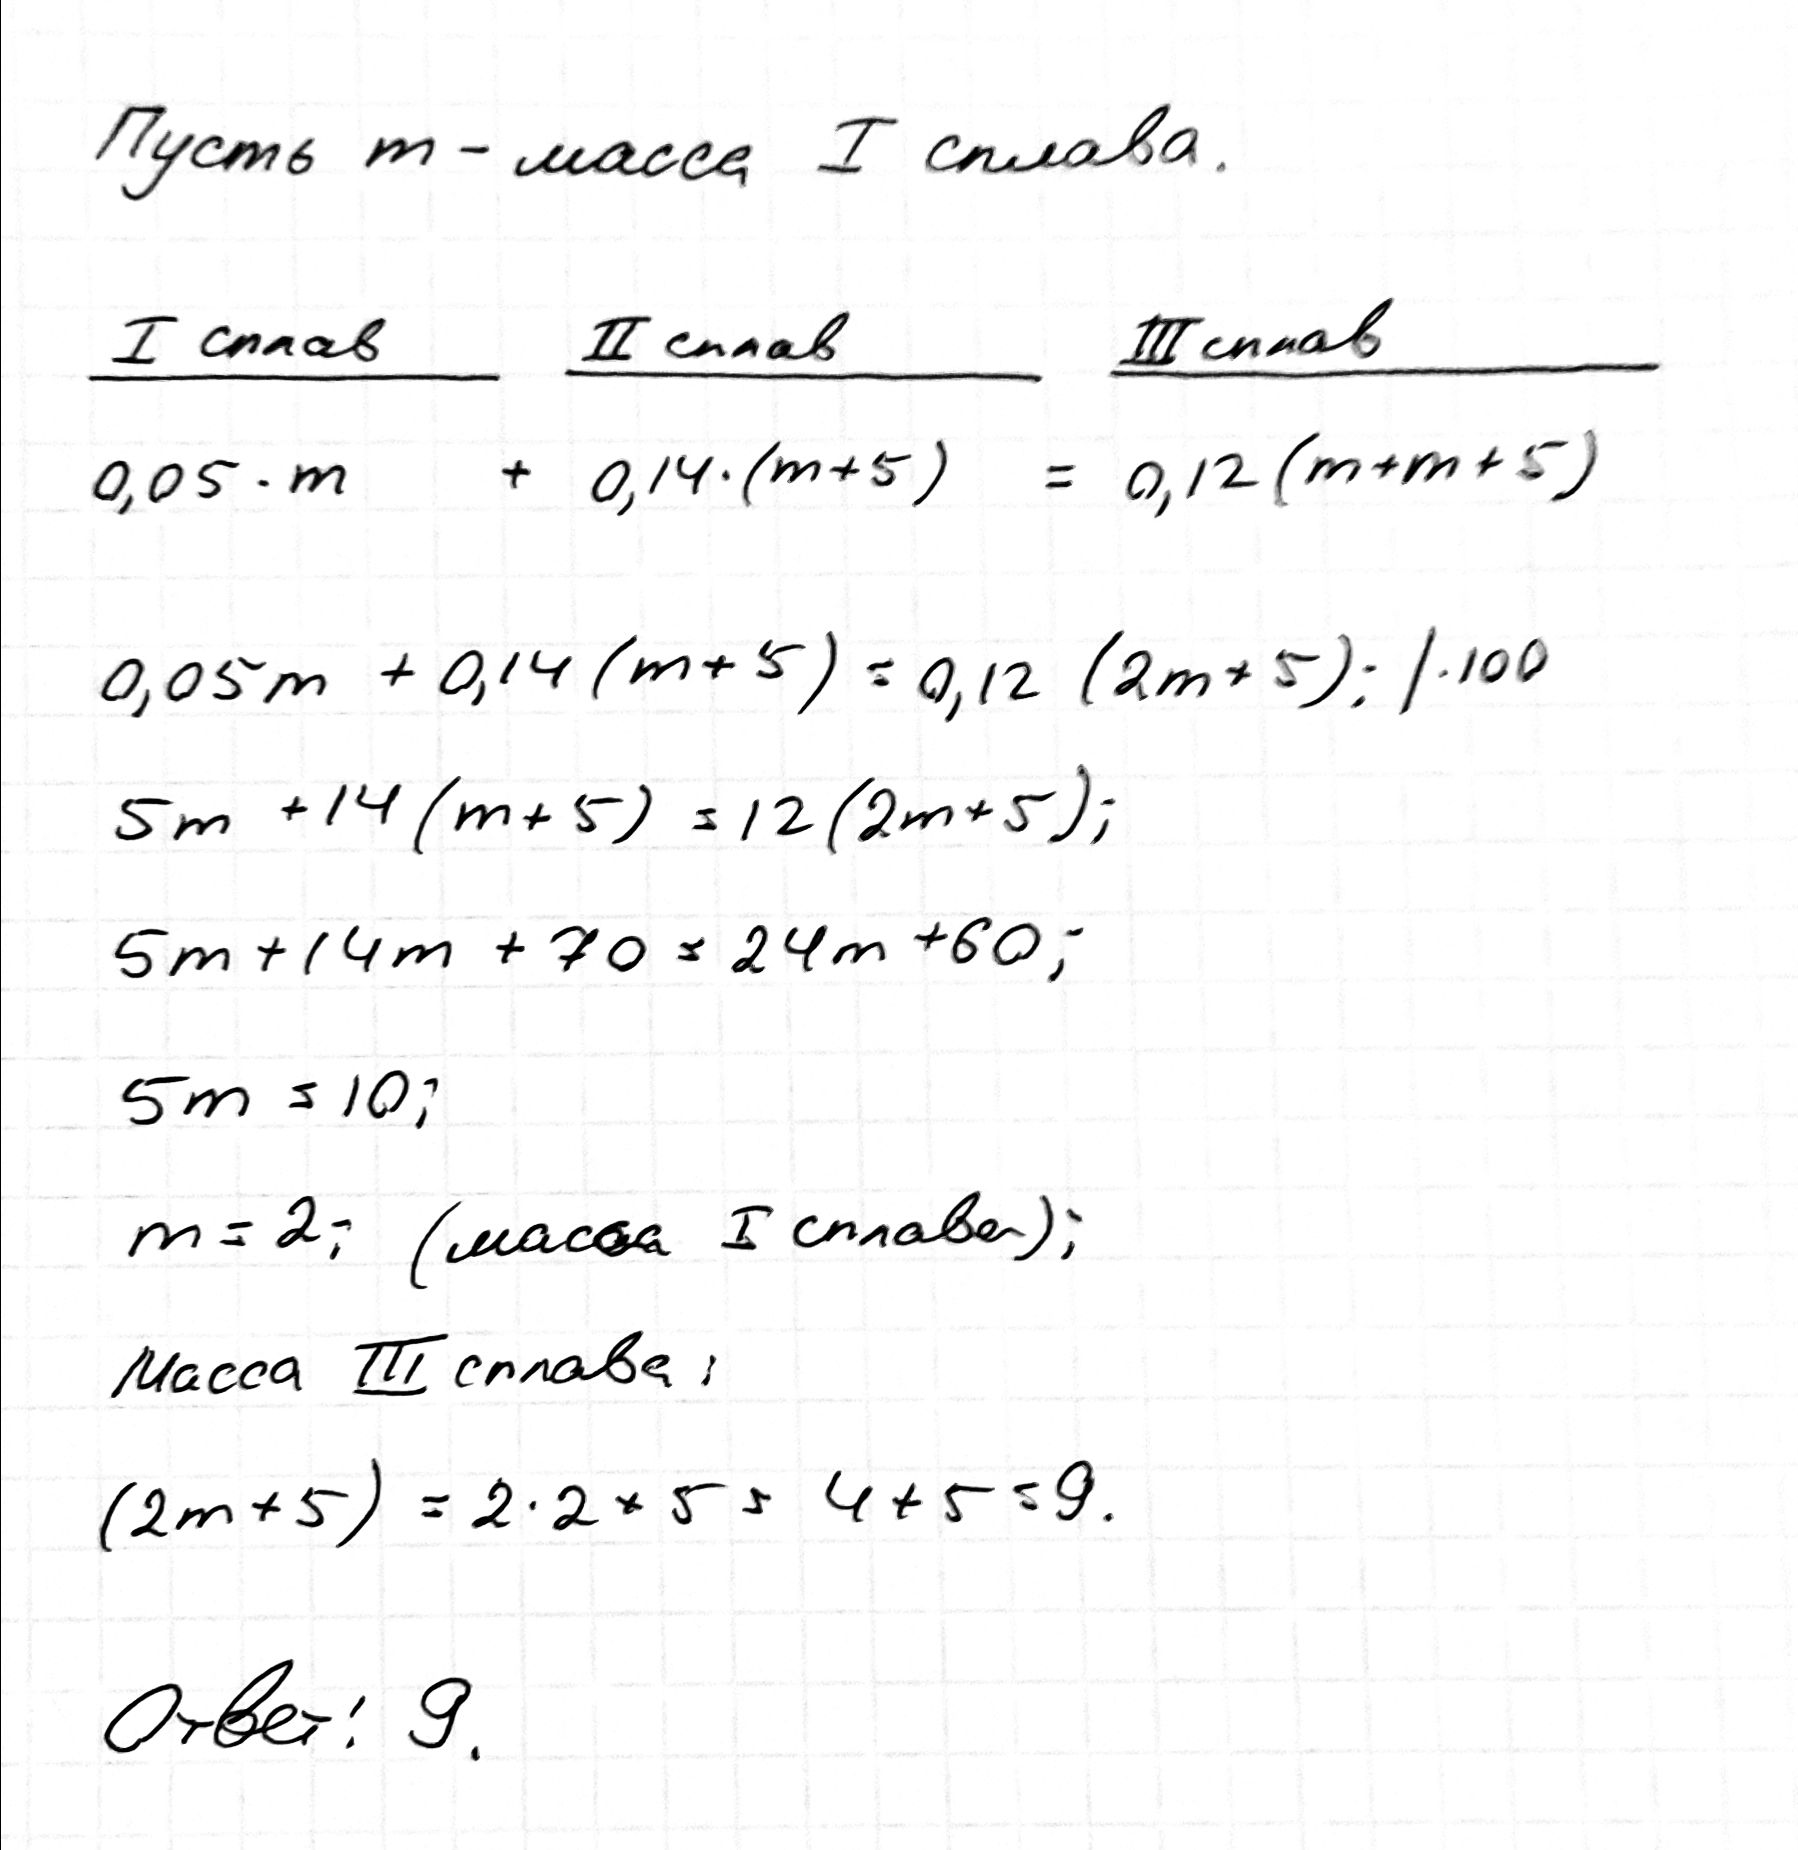 Пусть m - масса I сплава.
I сплав II сплав III сплав
0,05·m + 0,14·(m+5) = 0,12(m+m+5)
0,05m + 0,14(m+5) = 0,12(2m+5); |·100
5m + 14(m+5) = 12(2m+5);
5m+14m + 70 = 24m+60;
5m = 10;
m = 2; (масса I сплава);
Масса III сплава:
(2m+5) = 2·2+5 = 4+5 = 9.
Ответ: 9.